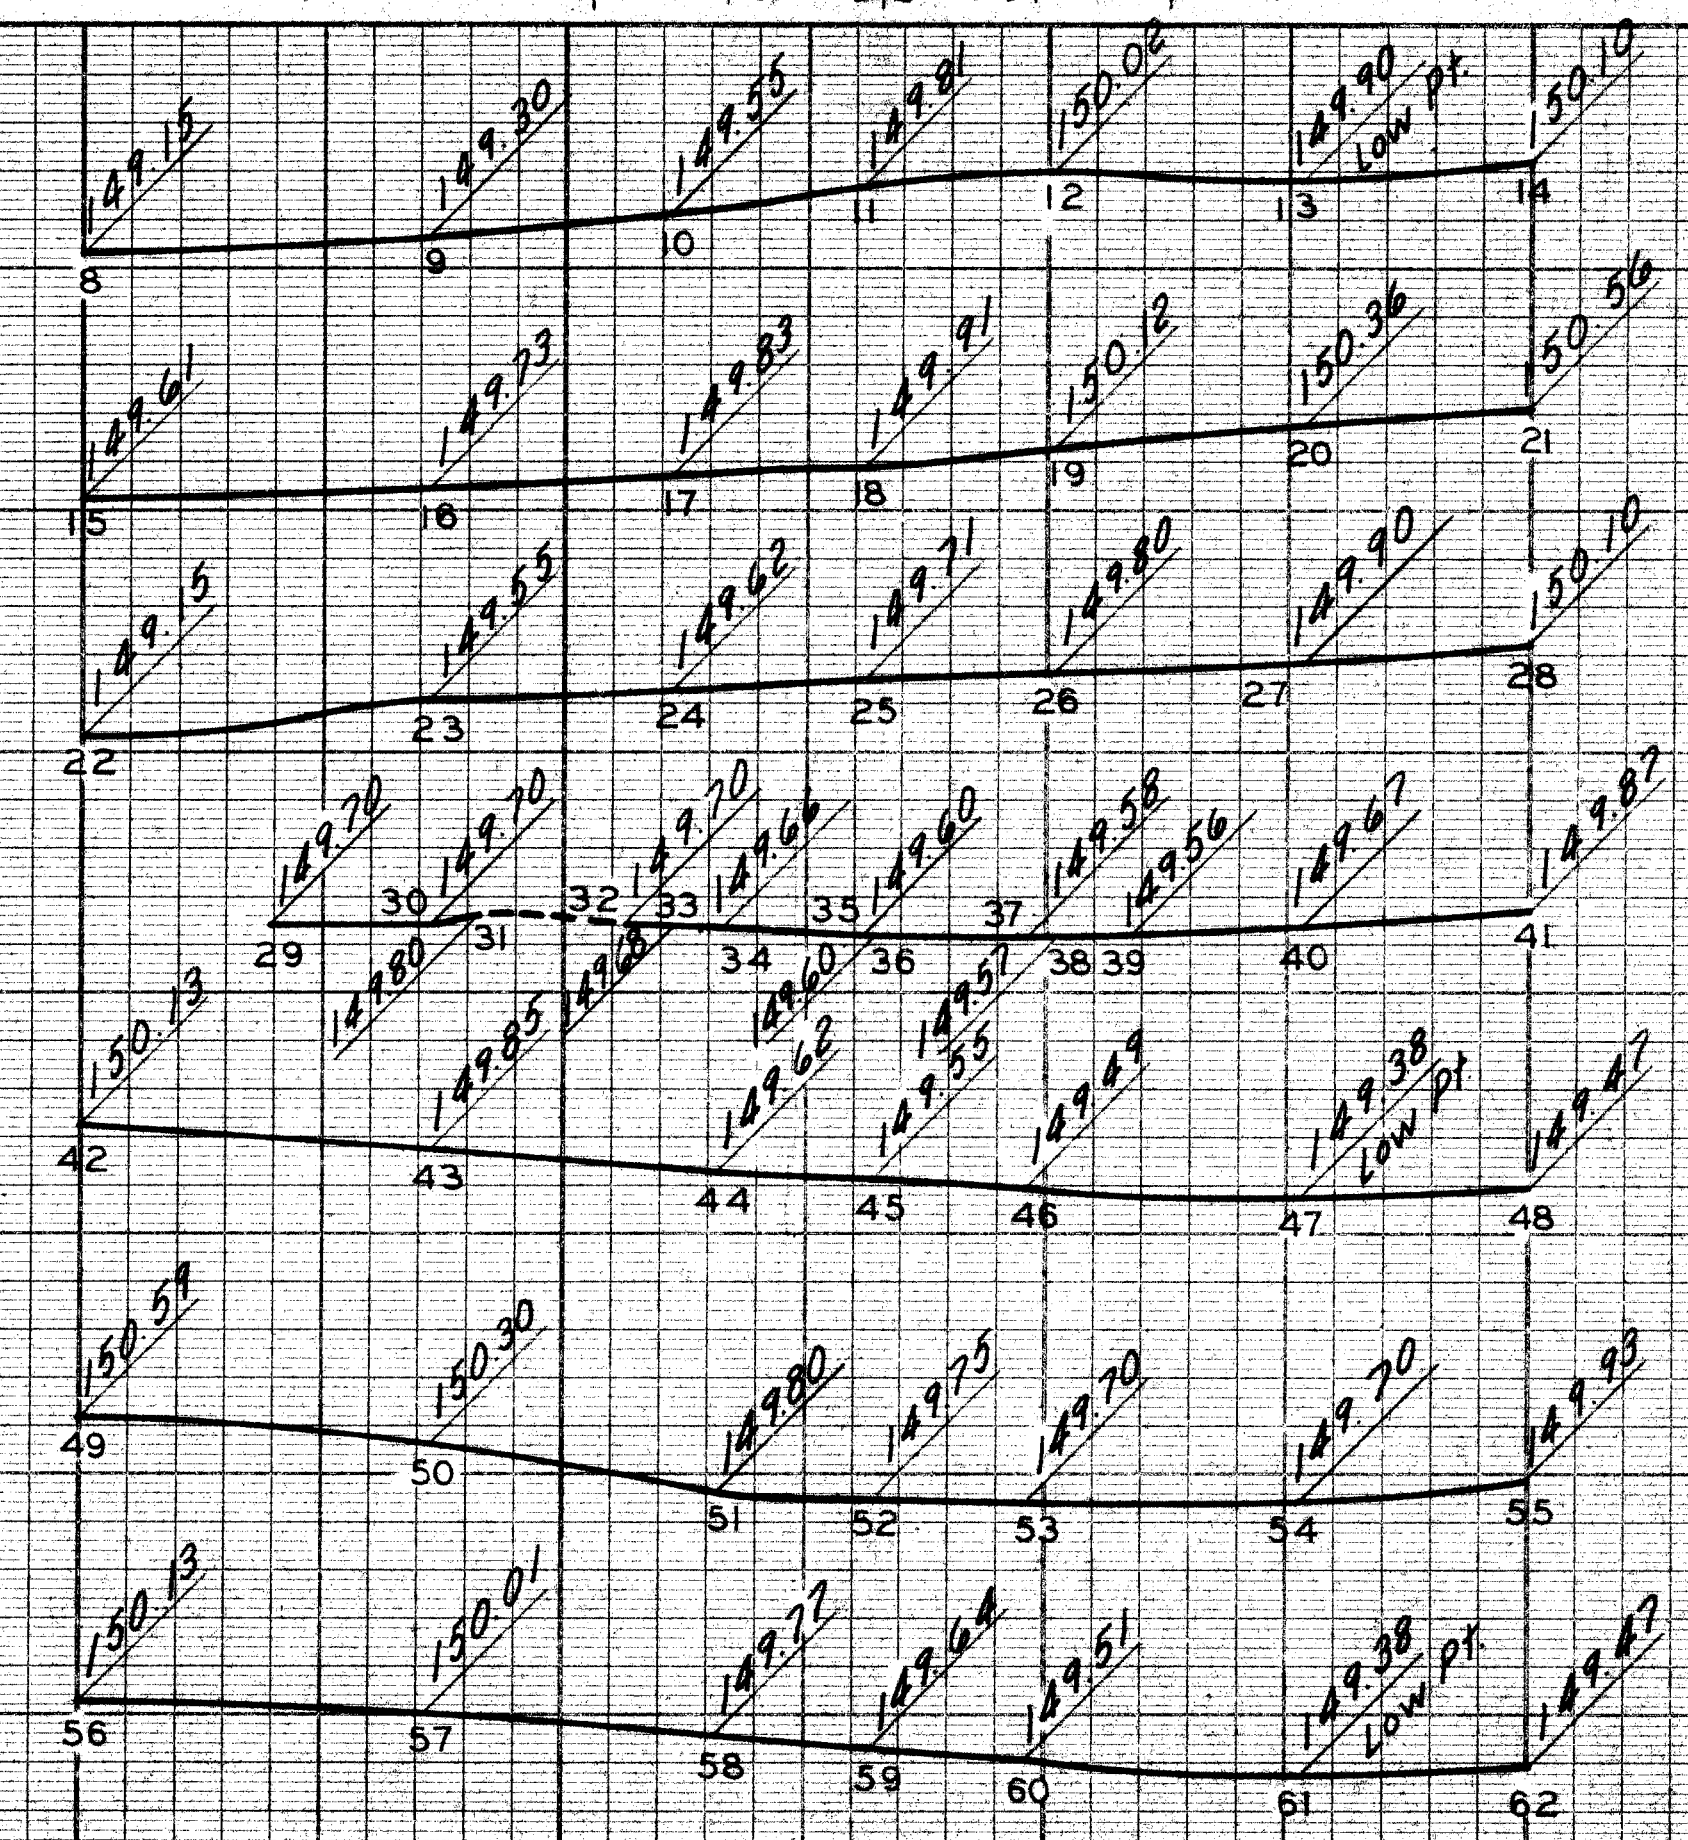 149.15 149.30 149.55 149.81 150.02 149.90 Low pt. 150.10
8 9 10 11 12 13 14
149.61 149.73 149.83 149.91 150.12 150.36 150 56
15 16 17 18 19 20 21
149.15 149.55 149.62 149.71 149.80 149.90 150.10
22 23 24 25 26 27 28
149.70 149.70 149.70 149.66 149.60 149.58 149.56 149.67 149.87
30 32 33 35 37
29 31 34 36 38 39 40 41
149.80 149.68 149.60 149.57
150.13 149.85 149.62 149.55 149.49 149.38 Low pt. 149.47
42 43 44 45 46 47 48
150.59 150.30 149.80 149.75 149.70 149.70 149.93
49 50 51 52 53 54 55
150.13 150.01 149.77 149.64 149.51 149.38 Low pt. 149.47
56 57 58 59 60 61 62